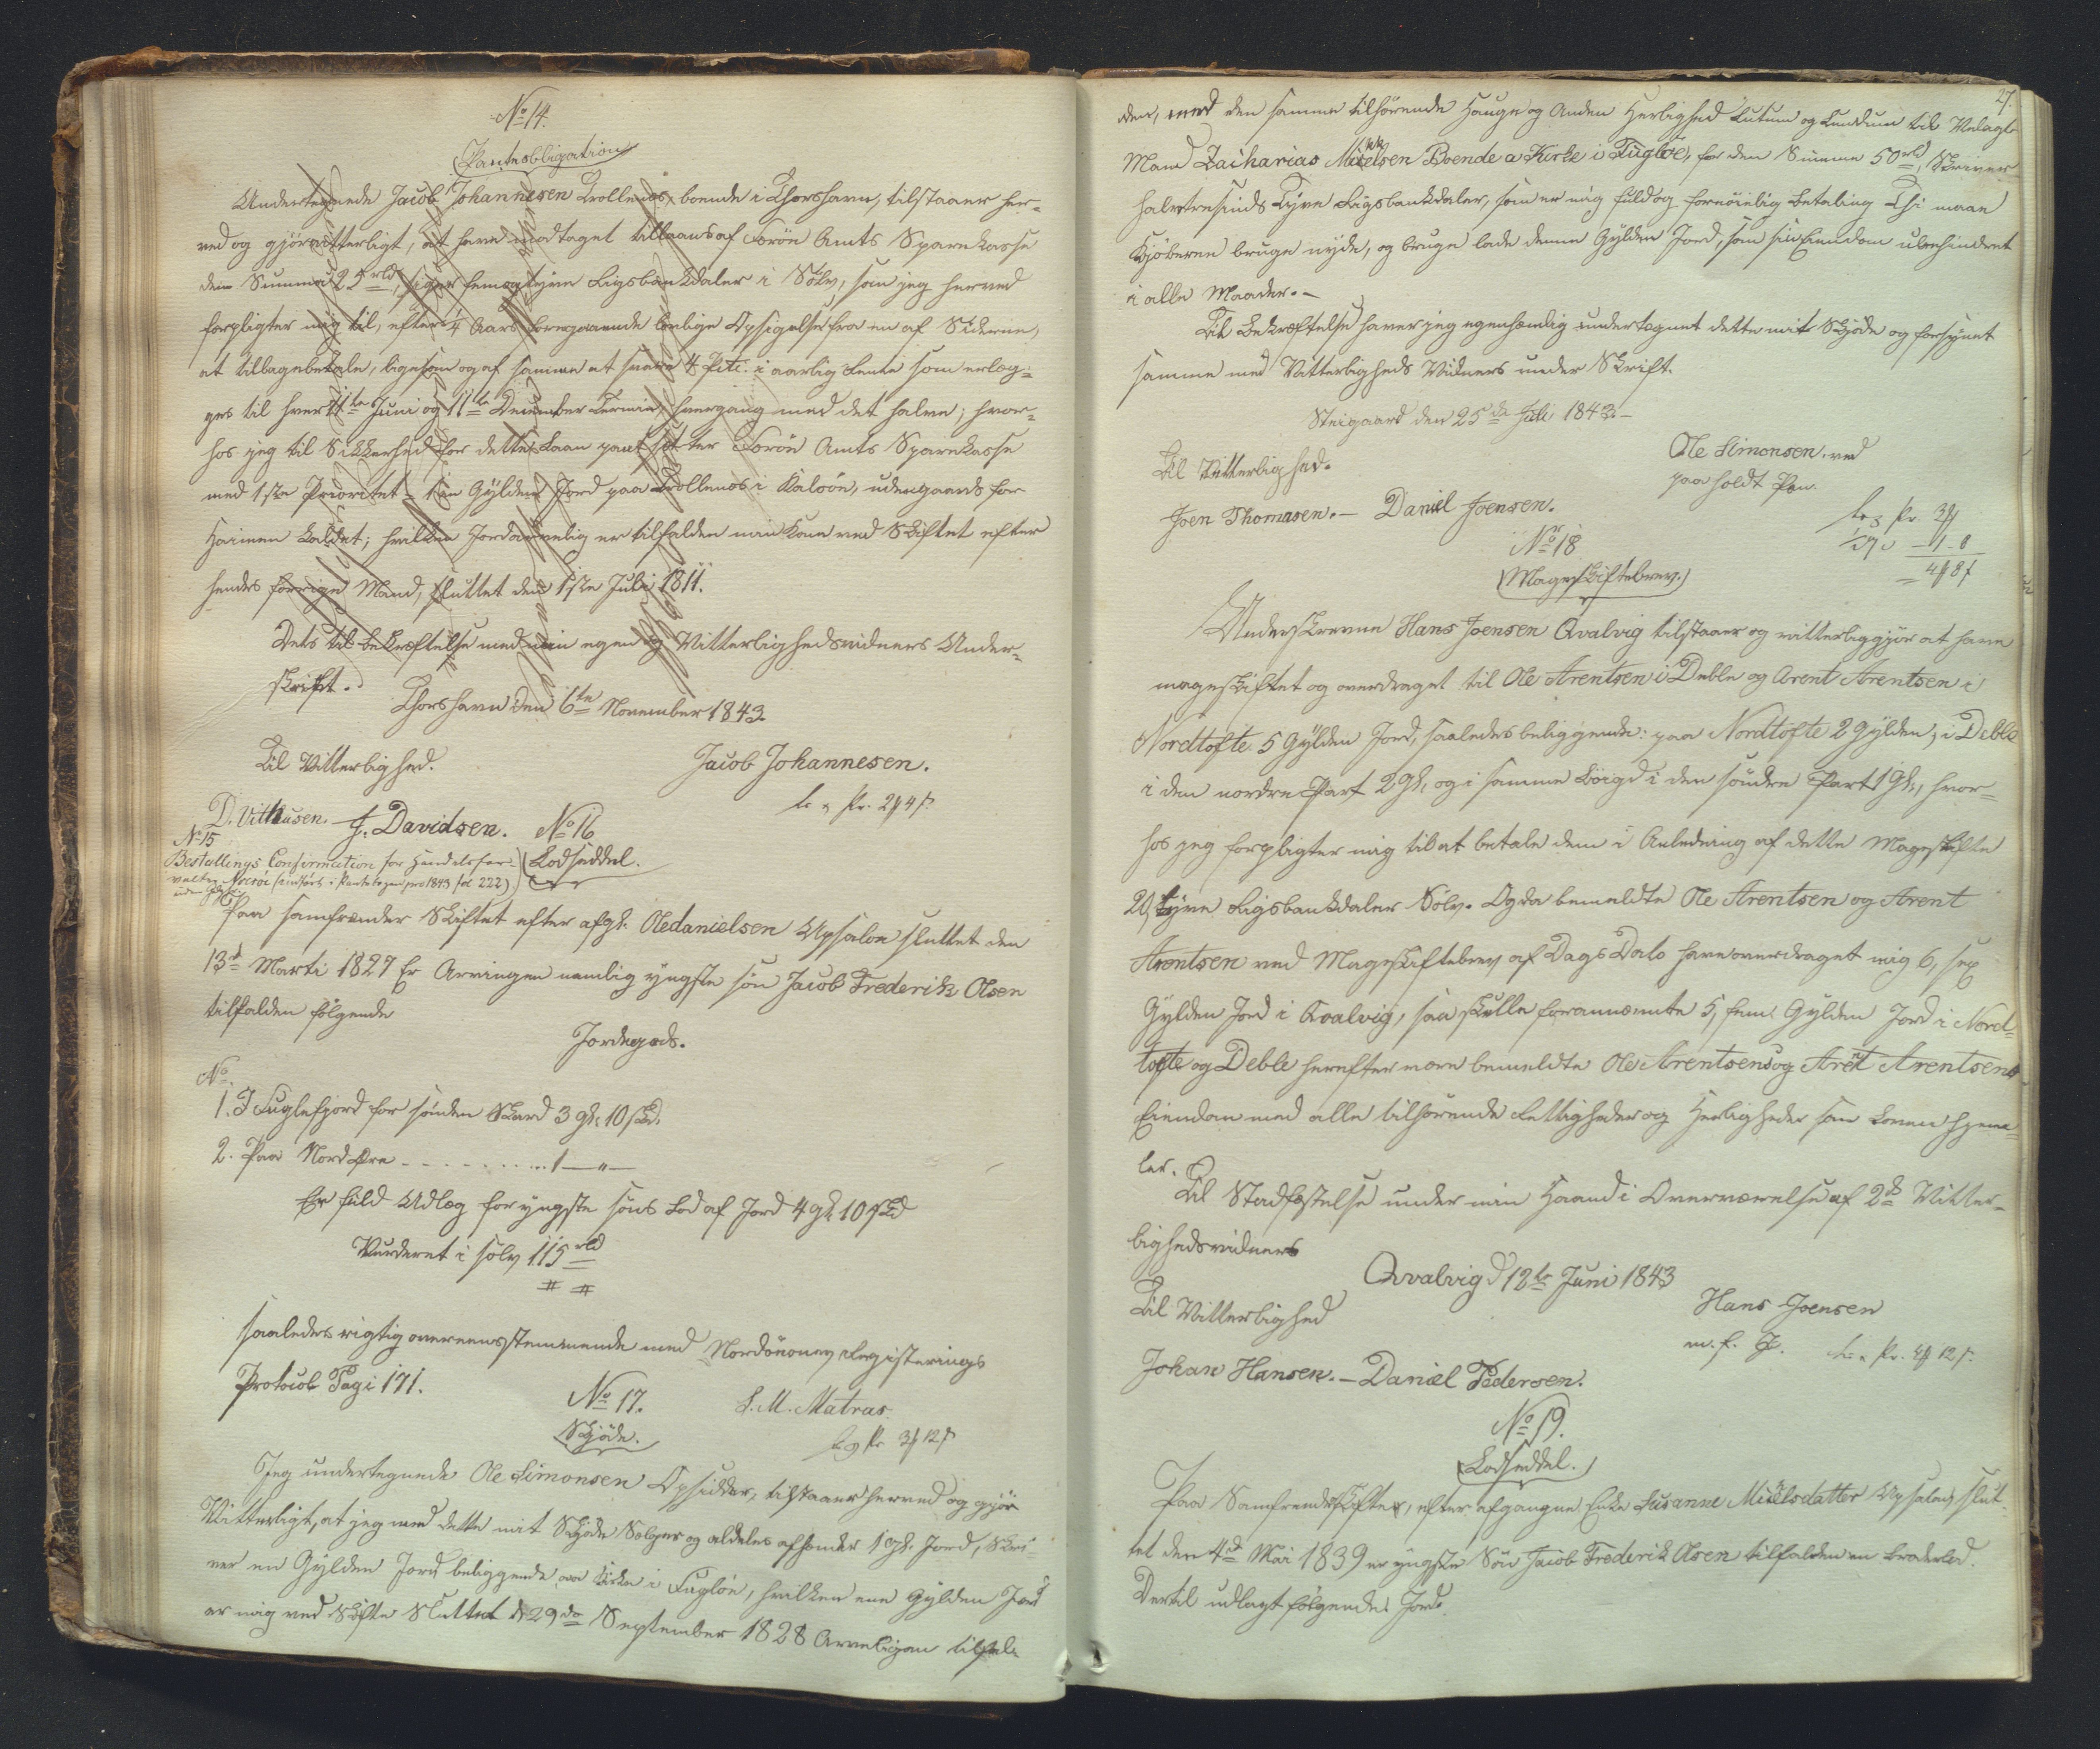 No 14.
Pantobligation
Undertegnede Jacob Johannesen Trollenæs, boende i Thorshavn, tilstaaer her=
ved og gjør vitterligt, at have modtaget tillaans af Færøe Amts Sparekasse
den Summa 25 rbd, siger femogtyve Rigsbankdaler i Sølv, som jeg herved
forpligter mig til, efter 1/4 Aars foregaaende lovlige Opsigelse fra en af Siderne,
at tilbagebetale, ligesom og af samme at svare 4 Pctc. i aarlig Rente som erlæg=
ges til hver 11te Juni og 11te December Termin, hvergang med det halve; hvor=
hos jeg til Sikkerhed for dette Laan pantsætter Færøe Amts Sparekasse
med 1ste Prioritet = 1 een Gylden Jord paa Trollenæs i Kalsøe, udengaards for
Haimen kaldet; hvilken Jord arvelig er tilfalden min Kone ved Skiftet efter
hendes forrige Mand, sluttet den 1ste Juli 1811.
Dets til Bekræftelse med min egen og Vitterlighedsvidners Under=
skrift.
Thorshavn den 6te November 1843.
Til Vitterlighed.
Jacob Johannesen.
D. Vithusen. J. Davidsen.
No 15
Bestallings Confirmation for Handelsfor=
valter Norsøe (indført i Pantebogen pro 1843 fol 222)
No 16
Lodseddel.
Paa samfrænder Skiftet efter afgk. Oledanielsen Upsalen sluttet den
13d Marti 1827 Er Arvingen nemlig yngste søn Jacob Frederik Olsen
tilfalden følgende
Jordegods.
No.
1. I Fuglefjord for sønden Skard 3 gl: 10 skd.
2. Paa Nord Øre - - - - - - - 1 — " —
Er fuld Udlæg for yngste søns Lod af Jord 4 gl 10 skd
Vurderet i sølv 115 rbd
saaledes rigtig overeensstemmende med Nordøernes Registerings
Protocol Pagi 171.
S. M. Matras.
No 17.
Skjøde.
Jeg undertegnede Ole Simonsen Opsidder, tilstaaer herved og gjør
Vitterligt, at jeg med dette mit Skjøde Sælger og aldeles afhænder 1 gl. Jord, Skri=
ver en Gylden Jord beliggende aa Kirke i Fugløe, hvilken ene Gylden Jord
er mig ved Skifte Sluttet d 29de September 1828 Arveligen tilfal=
27.
den, med den samme tilhørende Hauge og Anden Herlighed Lutum og Lunдum til Velagte
Mand Zacharias Mikkelsen Boende a Kirke i Fugløe, for den Summa 50 rbd, Skriver
halvtresinds Tyve Rigsbankdaler, som er mig fuld og fornøielig Betaling Thi maae
Kjøberen bruge nyde, og bruge lade denne Gylden Jord, som sin Eiendom ubehindret
i alle Maader. —
Til Bekræftelse haver jeg egenhændig undertegnet dette mit Skjøde og forsynet
samme med Vitterligheds Vidners under Skrift.
Steigaard den 25de Juli 1843. —
Til Vitterlighed.
Ole Simonsen. ved
paa holdt Pen.
Joen Thomasen. — Daniel Joensen.
No 18
Mageskiftebrev.
Underskrevne Hans Joensen Qvalvig tilstaaer og vitterliggjør at have
mageskiftet og overdraget til Ole Arentsen i Deble og Arent Arentsen i
Nordtofte 5 Gylden Jord, saaledes beliggende: paa Nordtofte 2 Gylden, i Deble
i den nordre Part 2 Gl, og i samme Bøigd i den søndre Part 1 Gl., hvor=
hos jeg forpligter mig til at betale dem i Anledning af dette Mageskifte
20, tyve Rigsbankdaler Sølv. Og da bemeldte Ole Arentsen og Arent
Arentsen ved Mageskiftebrev af Dags Dato have overdraget mig 6, sex
Gylden Jord i Kvalvig, saa skulle forannævnte 5, fem Gylden Jord i Nord=
tofte og Deble herefter være bemeldte Ole Arentsens og Arent Arentsens
Eiendom med alle tilhørende Rettigheder og Herligheder som Loven hjem=
ler.
Til Stadfæstelse under min Haand i Overværelse af 2de Vitter=
lighedsvidner
Qvalvig d 12te Juni 1843
Til Vitterlighed
Hans Joensen
m. f. P.
Johan Hansen. — Daniel Pedersen.
No 19.
Lodseddel.
Paa Samfrændeskiftet, efter afgangne Enke Susanne Mickelsdatter Upsalen slut=
tet den 4d Mai 1839 er yngste Søn Jacob Frederik Olsen tilfalden en Broderlod.
Dertil udlagt følgende Jord.